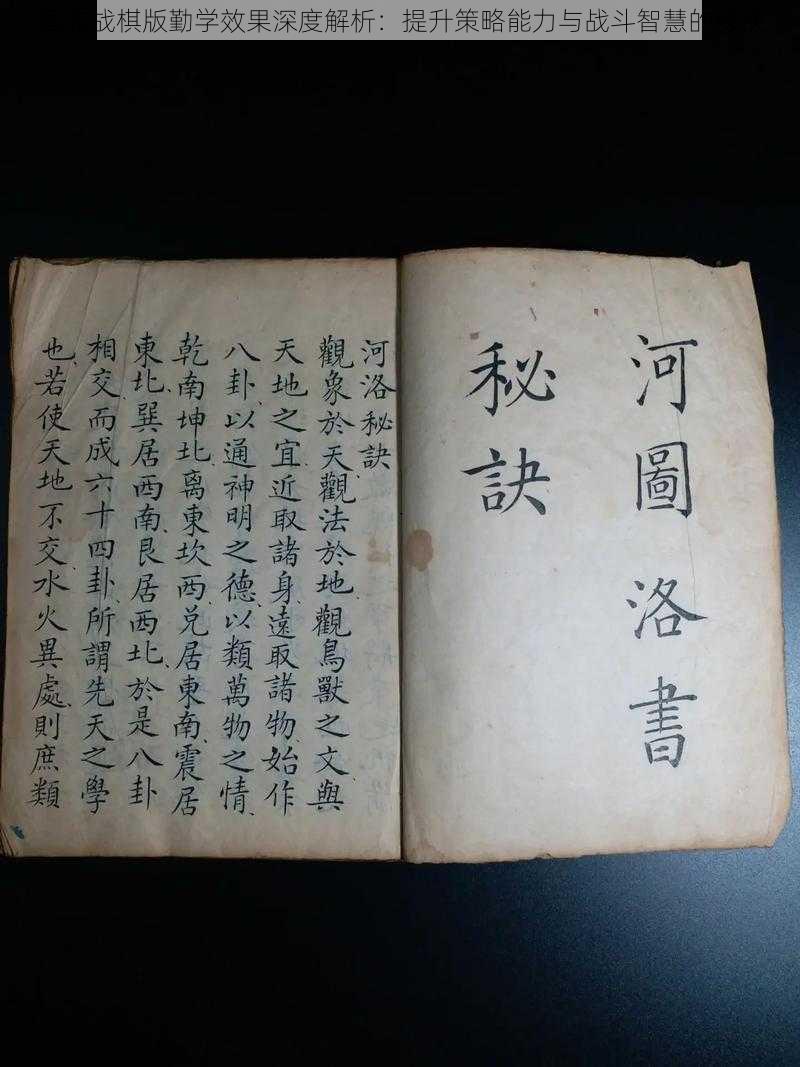 战棋版勤学效果深度解析：提升策略能力与战斗智慧的
河圖洛書
秘訣
河洛秘訣
觀象於天觀法於地觀鳥獸之文與
天地之宜近取諸身遠取諸物始作
八卦以通神明之德以類萬物之情
乾南坤北离東坎西兑居東南震居
東北巽居西南艮居西北於是八卦
相交而成六十四卦所謂先天之學
也若使天地不交水火異處則庶類